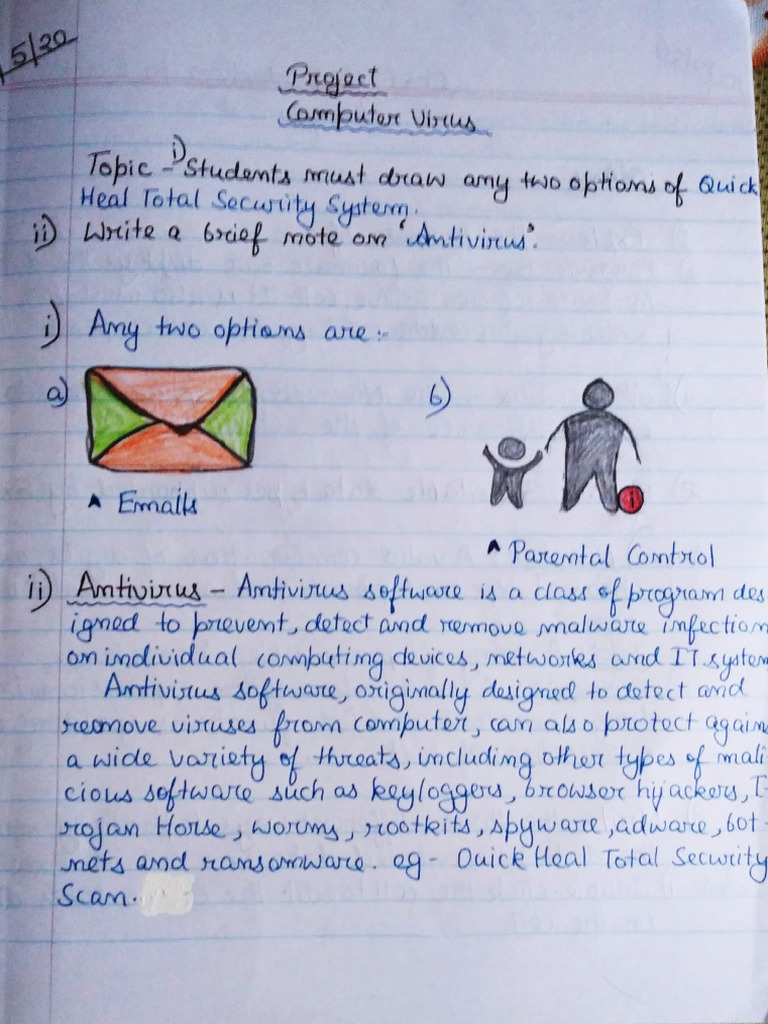 5/20
Project
Computer Virus
Topic - i) Students must draw any two options of Quick
Heal Total Security System.
ii) Write a brief note on 'Antivirus'.
i) Any two options are :-
a)
b)
Emails
Parental Control
ii) Antivirus - Antivirus software is a class of program des-
igned to prevent, detect and remove malware infection
on individual computing devices, networks and IT system
Antivirus software, originally designed to detect and
reomove viruses from computer, can also protect agains
a wide variety of threats, including other types of mali
cious software such as keyloggers, browser hijackers, T-
rojan Horse, worms, rootkits, spyware, adware, bot-
nets and ransomware. eg - Quick Heal Total Security
Scan.